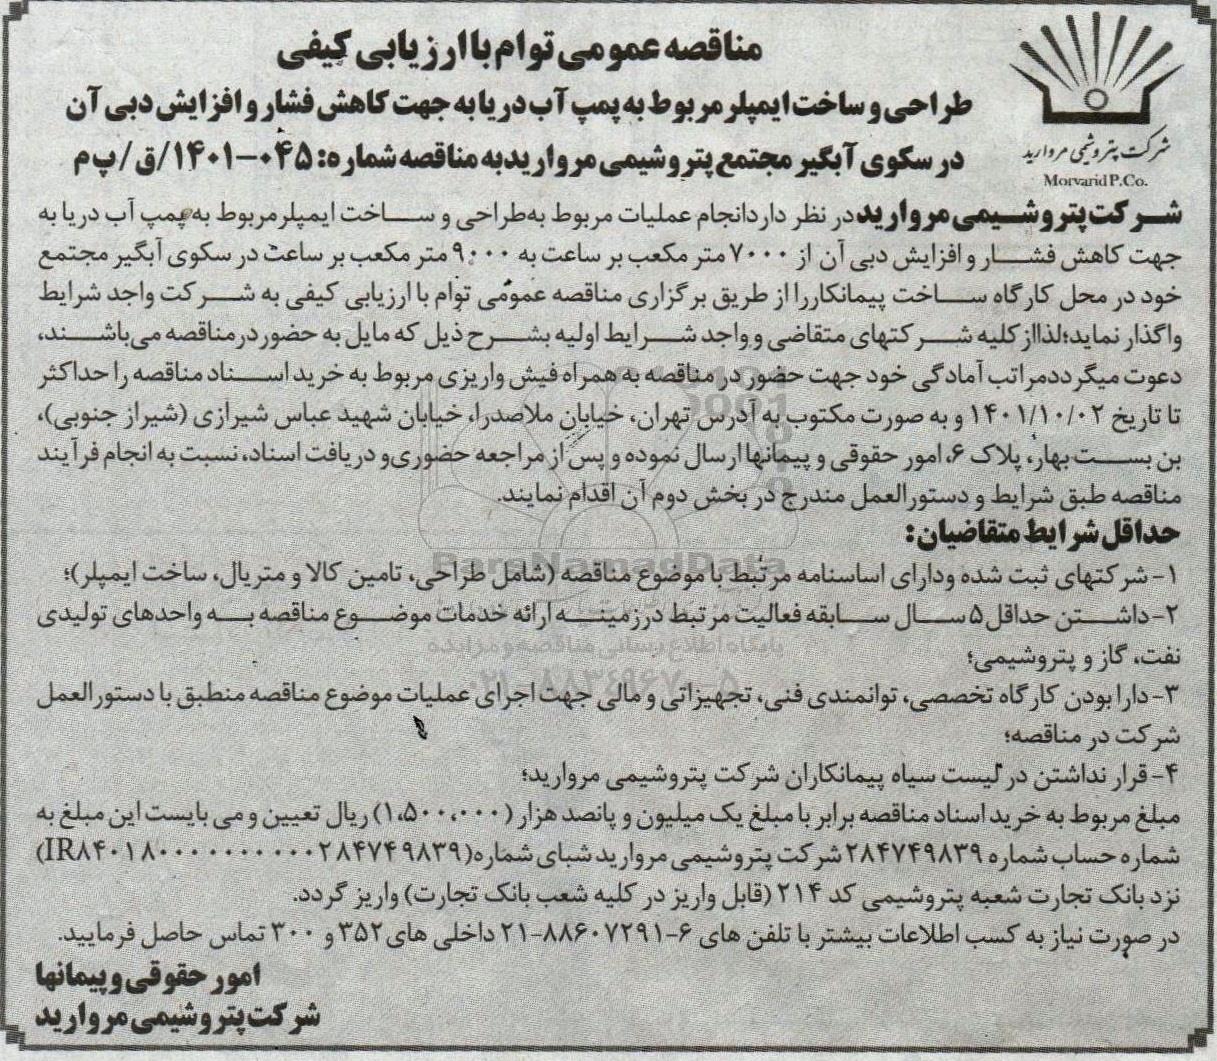 مناقصه عمومی توام با ارزیابی کیفی
طراحی و ساخت ایمپلر مربوط به پمپ آب دریا به جهت کاهش فشار و افزایش دبی آن
در سکوی آبگیر مجتمع پتروشیمی مروارید به مناقصه شماره: ۰۴۵-۱۴۰۱/ق/پ م
شرکت پتروشیمی مروارید
Morvarid P.Co.
شرکت پتروشیمی مروارید در نظر دارد انجام عملیات مربوط به طراحی و ساخت ایمپلر مربوط به پمپ آب دریا به
جهت کاهش فشار و افزایش دبی آن از ۷۰۰۰ متر مکعب بر ساعت به ۹۰۰۰ متر مکعب بر ساعت در سکوی آبگیر مجتمع
خود در محل کارگاه ساخت پیمانکار را از طریق برگزاری مناقصه عمومی توام با ارزیابی کیفی به شرکت واجد شرایط
واگذار نماید؛ لذا از کلیه شرکتهای متقاضی و واجد شرایط اولیه بشرح ذیل که مایل به حضور در مناقصه می‌باشند،
دعوت میگردد مراتب آمادگی خود جهت حضور در مناقصه به همراه فیش واریزی مربوط به خرید اسناد مناقصه را حداکثر
تا تاریخ ۱۴۰۱/۱۰/۰۲ و به صورت مکتوب به آدرس تهران، خیابان ملاصدرا، خیابان شهید عباس شیرازی (شیراز جنوبی)،
بن بست بهار، پلاک ۶، امور حقوقی و پیمانها ارسال نموده و پس از مراجعه حضوری و دریافت اسناد، نسبت به انجام فرآیند
مناقصه طبق شرایط و دستورالعمل مندرج در بخش دوم آن اقدام نمایند.
حداقل شرایط متقاضیان:
۱- شرکتهای ثبت شده و دارای اساسنامه مرتبط با موضوع مناقصه (شامل طراحی، تامین کالا و متریال، ساخت ایمپلر)؛
۲- داشتن حداقل ۵ سال سابقه فعالیت مرتبط در زمینه ارائه خدمات موضوع مناقصه به واحدهای تولیدی
نفت، گاز و پتروشیمی؛
۳- دارا بودن کارگاه تخصصی، توانمندی فنی، تجهیزاتی و مالی جهت اجرای عملیات موضوع مناقصه منطبق با دستورالعمل
شرکت در مناقصه؛
۴- قرار نداشتن در لیست سیاه پیمانکاران شرکت پتروشیمی مروارید؛
مبلغ مربوط به خرید اسناد مناقصه برابر با مبلغ یک میلیون و پانصد هزار (۱،۵۰۰،۰۰۰) ریال تعیین و می بایست این مبلغ به
شماره حساب شماره ۲۸۴۷۴۹۸۳۹ شرکت پتروشیمی مروارید شبای شماره (IR۸۴۰۱۸۰۰۰۰۰۰۰۰۰۰۲۸۴۷۴۹۸۳۹)
نزد بانک تجارت شعبه پتروشیمی کد ۲۱۴ (قابل واریز در کلیه شعب بانک تجارت) واریز گردد.
در صورت نیاز به کسب اطلاعات بیشتر با تلفن های ۶-۸۸۶۰۷۲۹۱-۲۱ داخلی های ۳۵۲ و ۳۰۰ تماس حاصل فرمایید.
امور حقوقی و پیمانها
شرکت پتروشیمی مروارید
ParsNamadData
پایگاه اطلاع رسانی مناقصه و مزایده
۰۲۱-۸۸۳۴۹۶۷۰-۵